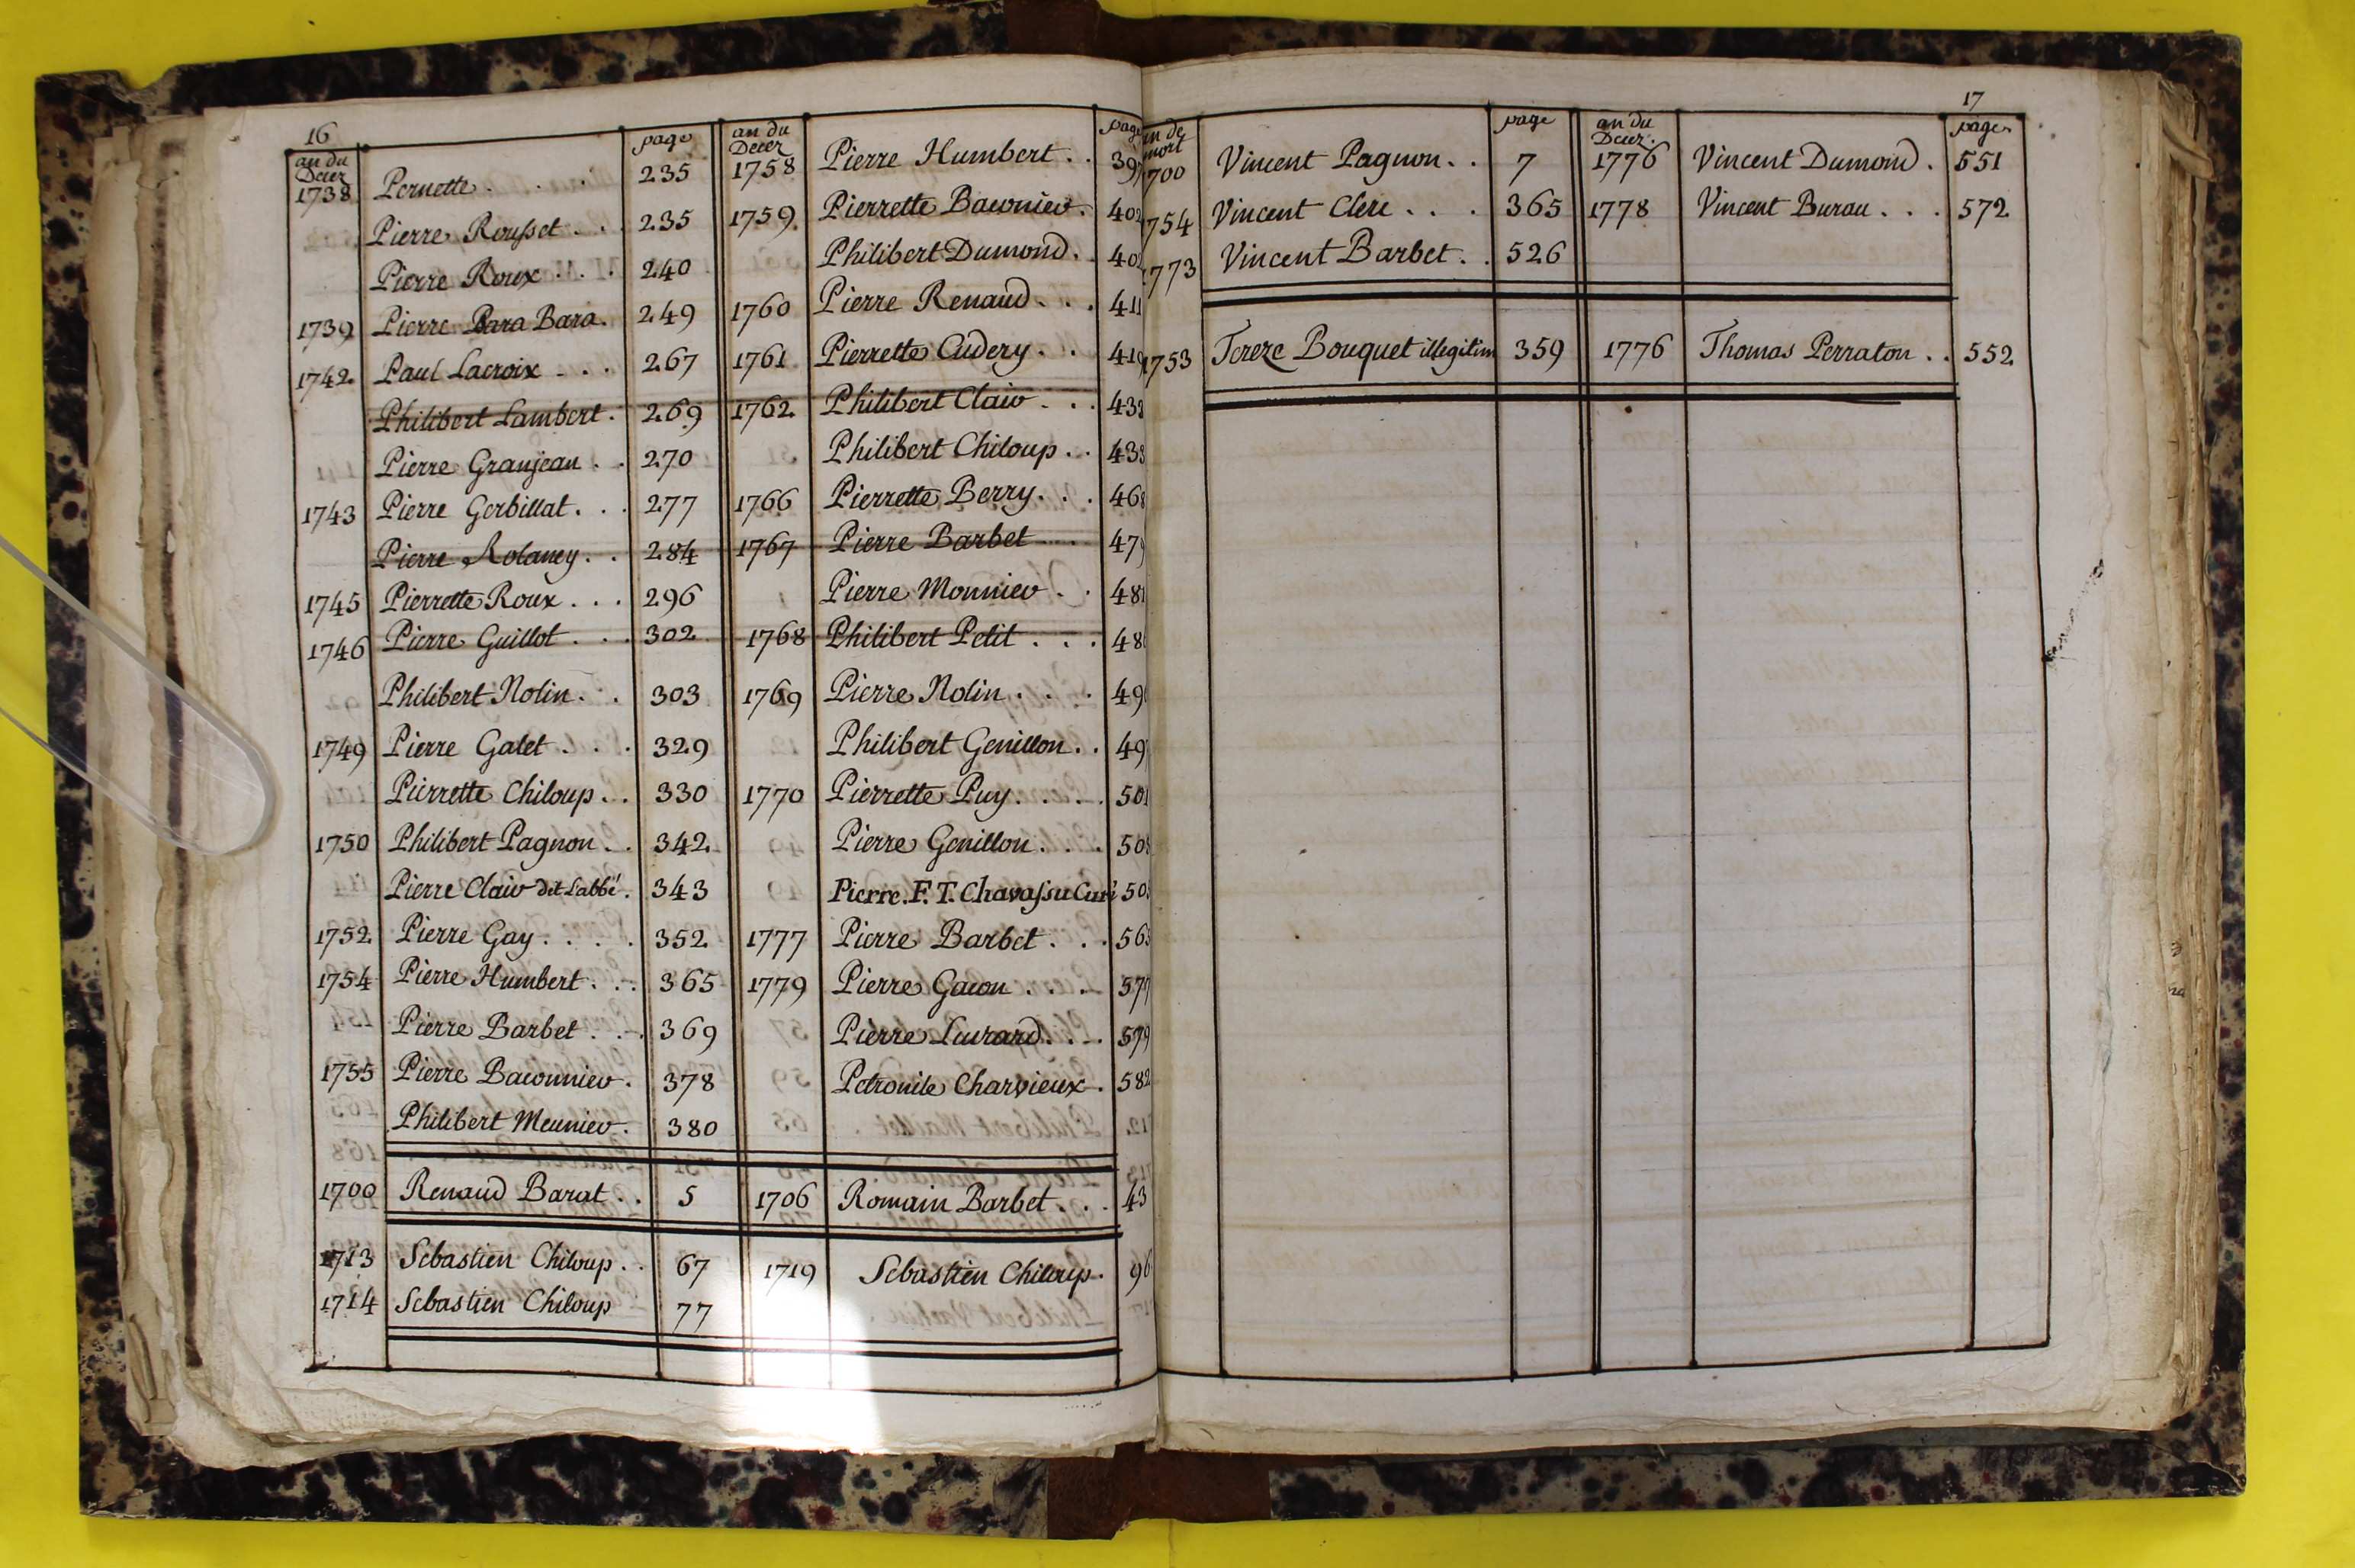 16
an du Decez page an du Decez page
1738 Pernette . . . 235 1758 Pierre Humbert . . 39
Pierre Rousset . . . 235 1759 Pierrette Baconnier . 402
Pierre Roux . . . 240 Philibert Dumond . 40
1739 Pierre Bara Bara . 249 1760 Pierre Renaud . . . 411
1742 Paul Lacroix . . . 267 1761 Pierrette Cudery . . 419
Philibert Lambert . 269 1762 Philibert Clair . . . 438
Pierre Granjean . . 270 Philibert Chiloup . . 438
1743 Pierre Gerbillat . . . 277 1766 Pierrette Berry . . . 468
Pierre Rolancy . . 284 1767 Pierre Barbet . . . 47
1745 Pierrette Roux . . . 296 Pierre Monnier . . 481
1746 Pierre Guillot . . . 302 1768 Philibert Petit . . . 48
Philibert Nolin . . 303 1769 Pierre Nolin . . . 49
1749 Pierre Galet . . . 329 Philibert Genillon . . 49
Pierrette Chiloup . . 330 1770 Pierrette Puy . . . . 501
1750 Philibert Pagnon . . 342 Pierre Genillon . . . 50
Pierre Clair dit Labbé . 343 Pierre . F. T. Chavassu Curé 50
1752 Pierre Gay . . . . 352 1777 Pierre Barbet . . . 56
1754 Pierre Humbert . . . 365 1779 Pierre Gacon . . . 577
Pierre Barbet . . . 369 Pierre Luirard . . . 579
1755 Pierre Baconnier . 378 Petronile Charvieux . 582
Philibert Meunier . 380
1700 Renaud Barat . . 5 1706 Romain Barbet . . . 43
1713 Sebastien Chiloup . . 67 1719 Sebastien Chiloup . 96
1714 Sebastien Chiloup 77
17
an de mort page an du Decez . page
700 Vincent Pagnon . . 7 1776 Vincent Dumond . 551
1754 Vincent Clerc . . . 365 1778 Vincent Burau . . . 572
1773 Vincent Barbet . . 526
1753 Tereze Bouquet illegitim 359 1776 Thomas Perraton . . 552